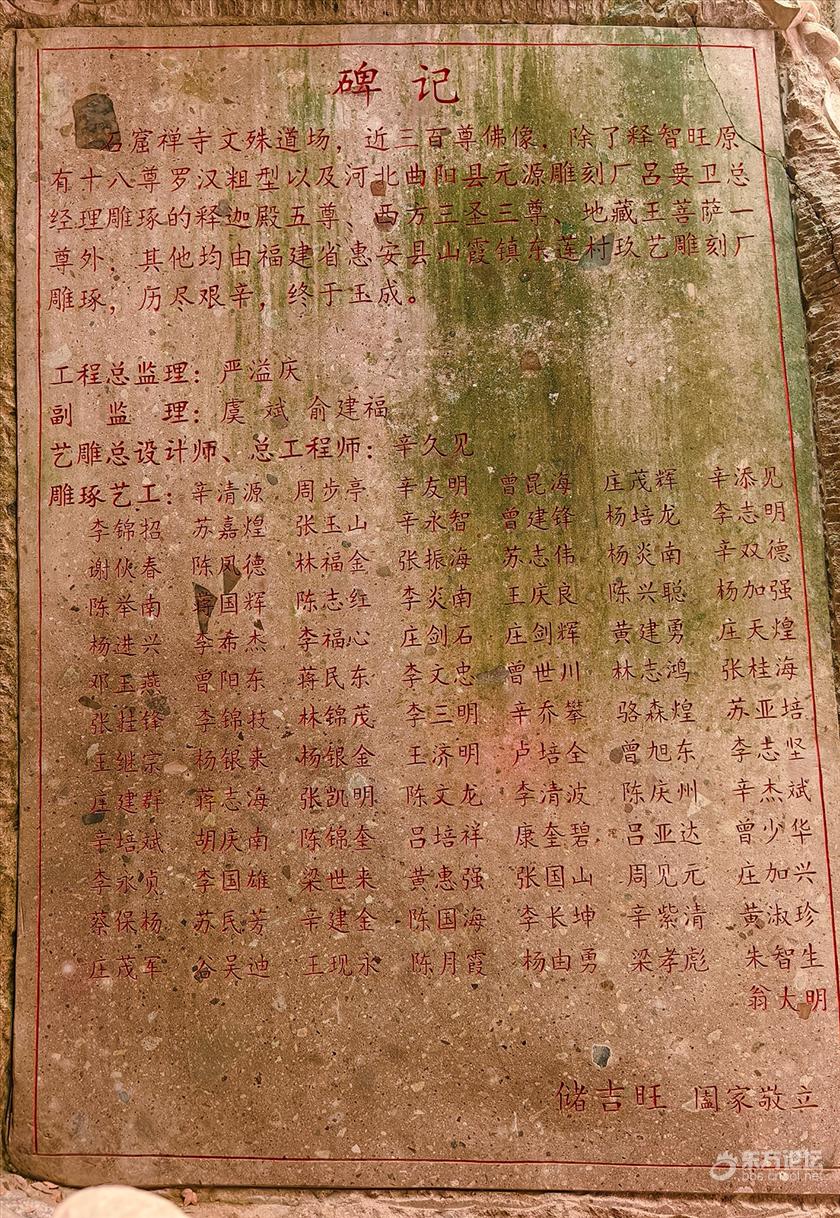 碑记
石窟禅寺文殊道场，近三百尊佛像，除了释智旺原
有十八尊罗汉粗型以及河北曲阳县元源雕刻厂吕要卫总
经理雕琢的释迦殿五尊、西方三圣三尊、地藏王菩萨一
尊外，其他均由福建省惠安县山霞镇东莲村玖艺雕刻厂
雕琢，历尽艰辛，终于玉成。
工程总监理：严溢庆
副 监 理：虞斌 俞建福
艺雕总设计师、总工程师：辛久见
雕琢艺工：辛清源 周步亭 辛友明 曾昆海 庄茂辉 辛添见
李锦招 苏嘉煌 张玉山 辛永智 曾建锋 杨培龙 李志明
谢伙春 陈凤德 林福金 张振海 苏志伟 杨炎南 辛双德
陈举南 蒋国辉 陈志红 李炎南 王庆良 陈兴聪 杨加强
杨进兴 李希杰 李福心 庄剑石 庄剑辉 黄建勇 庄天煌
邓玉燕 曾阳东 蒋民东 李文忠 曾世川 林志鸿 张桂海
张挂锋 李锦技 林锦茂 李三明 辛乔攀 骆森煌 苏亚培
王继宗 杨银来 杨银金 王济明 卢培全 曾旭东 李志坚
庄建群 蒋志海 张凯明 陈文龙 李清波 陈庆州 辛杰斌
辛培斌 胡庆南 陈锦奎 吕培祥 康奎碧 吕亚达 曾少华
李永贞 李国雄 梁世来 黄惠强 张国山 周见元 庄加兴
蔡保杨 苏民芳 辛建金 陈国海 李长坤 辛紫清 黄淑珍
庄茂军 谷吴迪 王现永 陈月霞 杨由勇 梁孝彪 朱智生
翁大明
储吉旺 阖家敬立
东方论坛
bbs.cnool.net